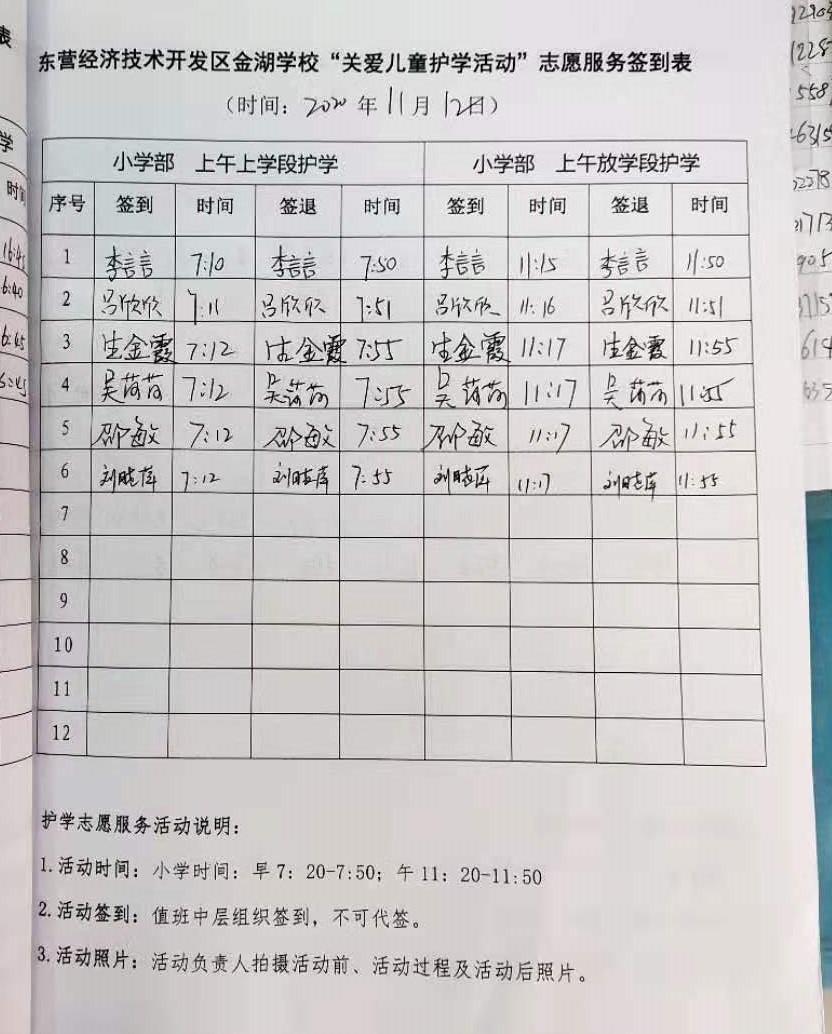 东营经济技术开发区金湖学校“关爱儿童护学活动”志愿服务签到表
（时间：2020 年 11 月 12日）
小学部 上午上学段护学 小学部 上午放学段护学
序号 签到 时间 签退 时间 签到 时间 签退 时间
1 李言言 7:10 李言言 7:50 李言言 11:15 李言言 11:50
2 吕欣欣 7:11 吕欣欣 7:51 吕欣欣 11:16 吕欣欣 11:51
3 生金霞 7:12 生金霞 7:55 生金霞 11:17 生金霞 11:55
4 吴芮芮 7:12 吴芮芮 7:55 吴芮芮 11:17 吴芮芮 11:55
5 邵敏 7:12 邵敏 7:55 邵敏 11:17 邵敏 11:55
6 刘晓 7:12 刘晓 7:55 刘晓 11:17 刘晓 11:55
7
8
9
10
11
12
护学志愿服务活动说明：
1.活动时间：小学时间：早 7：20-7:50；午 11：20-11:50
2.活动签到：值班中层组织签到，不可代签。
3.活动照片：活动负责人拍摄活动前、活动过程及活动后照片。